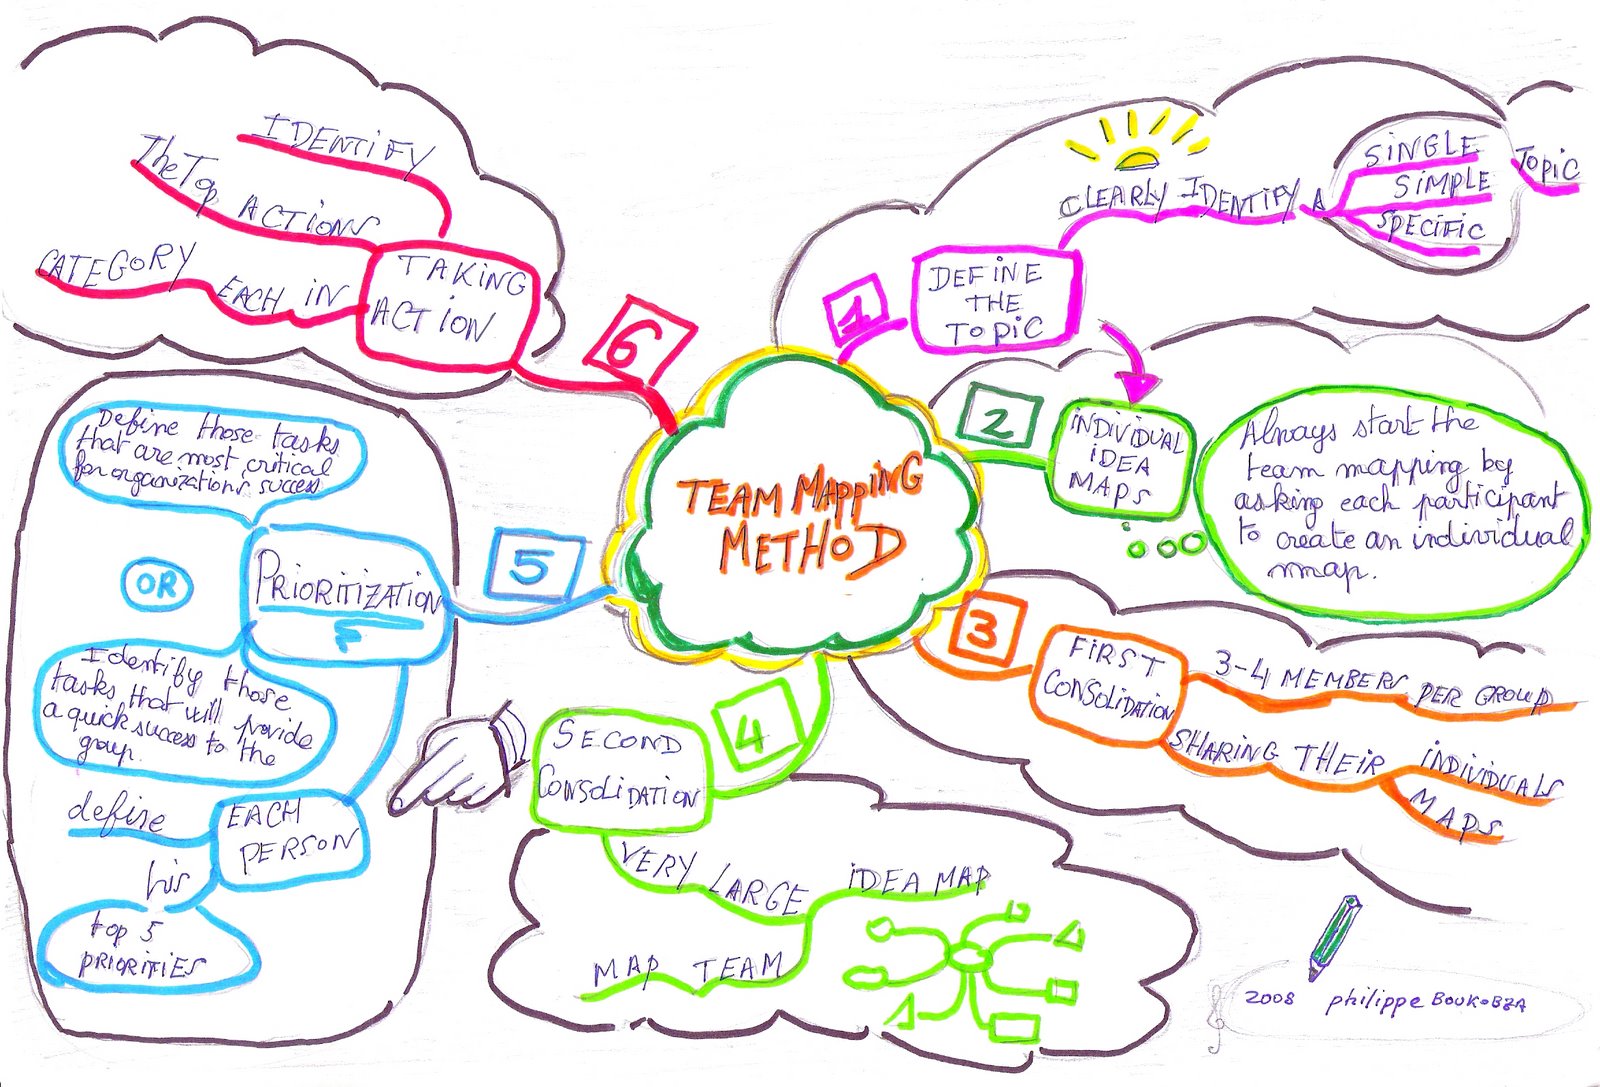 TEAM MAPPING
METHOD
1
DEFINE
THE
TOPIC
CLEARLY IDENTIFY A
SINGLE
SIMPLE
SPECIFIC
TOPIC
2
INDIVIDUAL
IDEA
MAPS
Always start the
team mapping by
asking each participant
to create an individual
map.
3
FIRST
CONSOLIDATION
3-4 MEMBERS PER GROUP
SHARING THEIR INDIVIDUALS
MAPS
4
SECOND
CONSOLIDATION
VERY LARGE IDEA MAP
MAP TEAM
5
PRIORITIZATION
Define those tasks
that are most critical
for organizations success
OR
Identify those
tasks that will provide
a quick success to the
group.
EACH
PERSON
define
his
top 5
PRIORITIES
6
TAKING
ACTION
IDENTIFY
The Top ACTIONS
CATEGORY EACH IN
2008 philippe BOUKOBZA